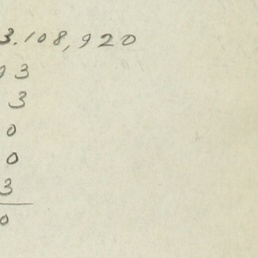 3.108,920
03
3
0
0
3
0